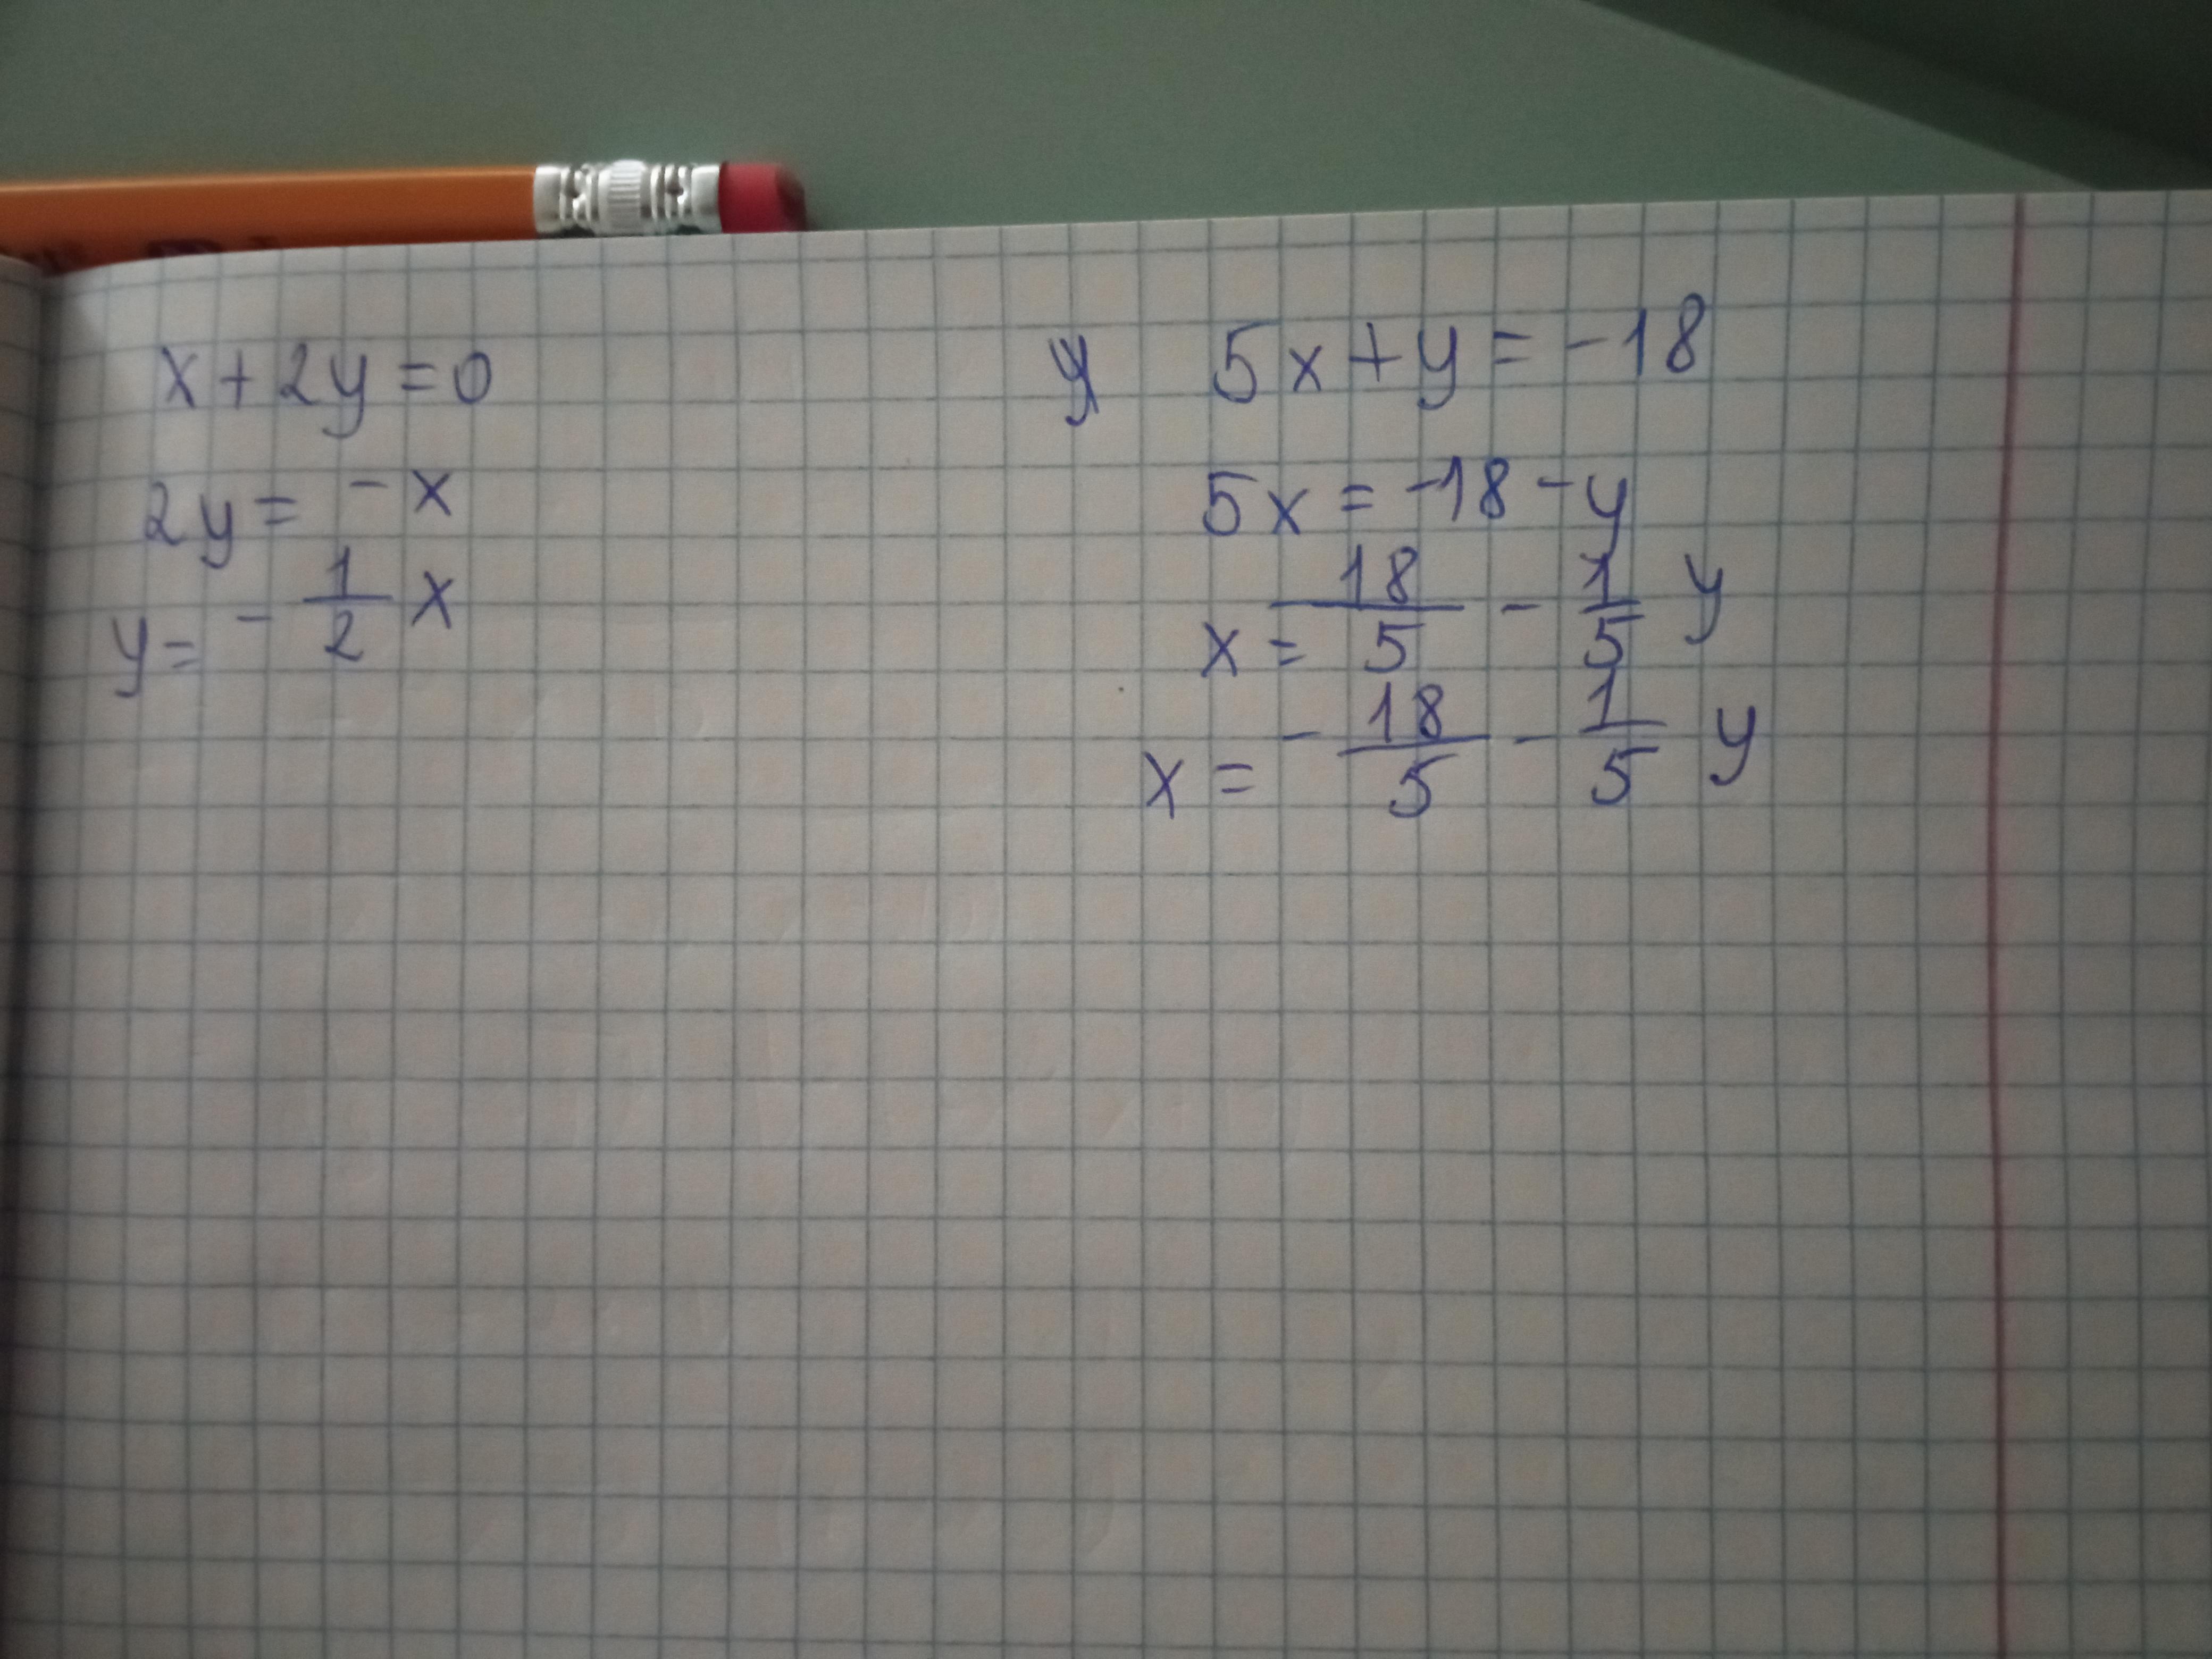 x + 2y = 0
2y = - x
y = - 1/2 x
5x + y = -18
5x = -18 - y
x = 18/5 - 1/5 y
x = - 18/5 - 1/5 y